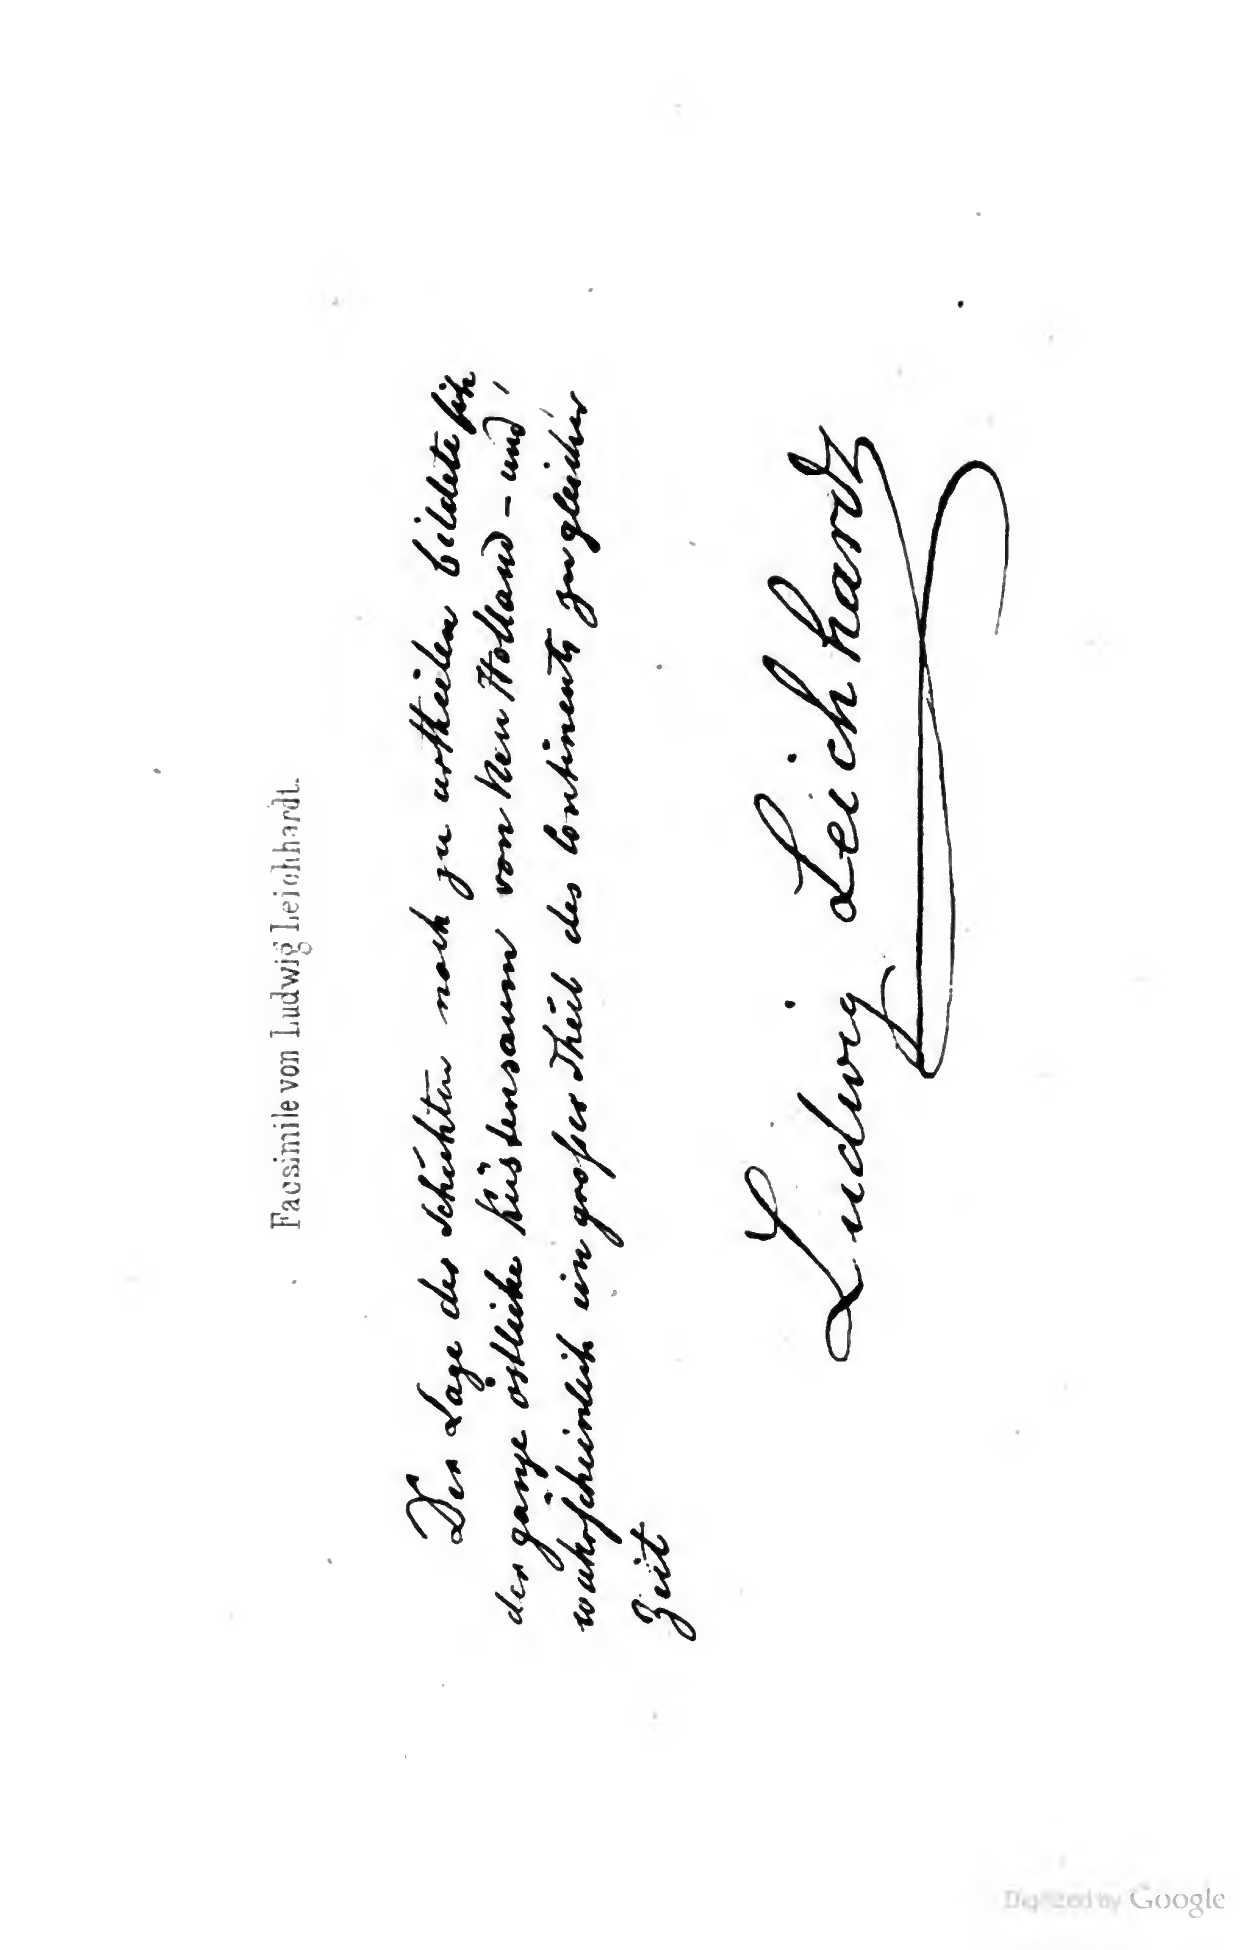 Facsimile von Ludwig Leichhardt.
Der Lage der Schichten nach zu urtheilen bildete sich
der ganze östliche Küstensaum von Neu Holland – und,
wahrscheinlich ein großer Theil des Continents zu gleicher
Zeit
Ludwig Leichhardt
Digitized by Google